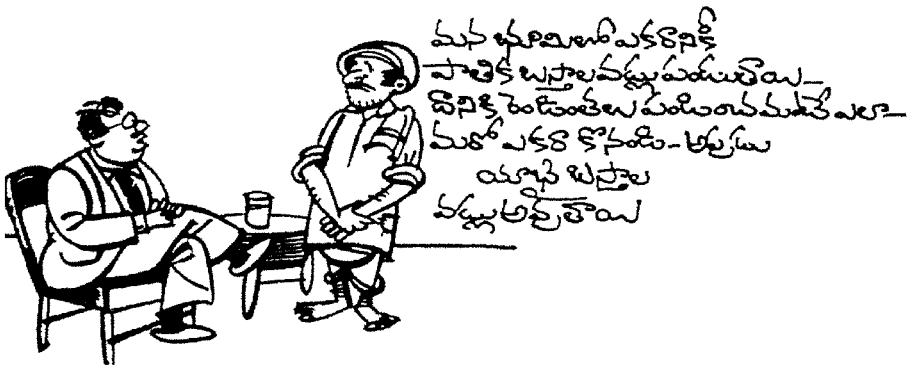 మన భూమిలో ఎకరానికీ
పాతిక బస్తాలవడ్లు పండుతాయి-
దానికి రెండింతలు పండించమంటే ఎలా-
మరో ఎకరా కొనండి- అప్పుడు
యాభై బస్తాల
వడ్లు అవుతాయి